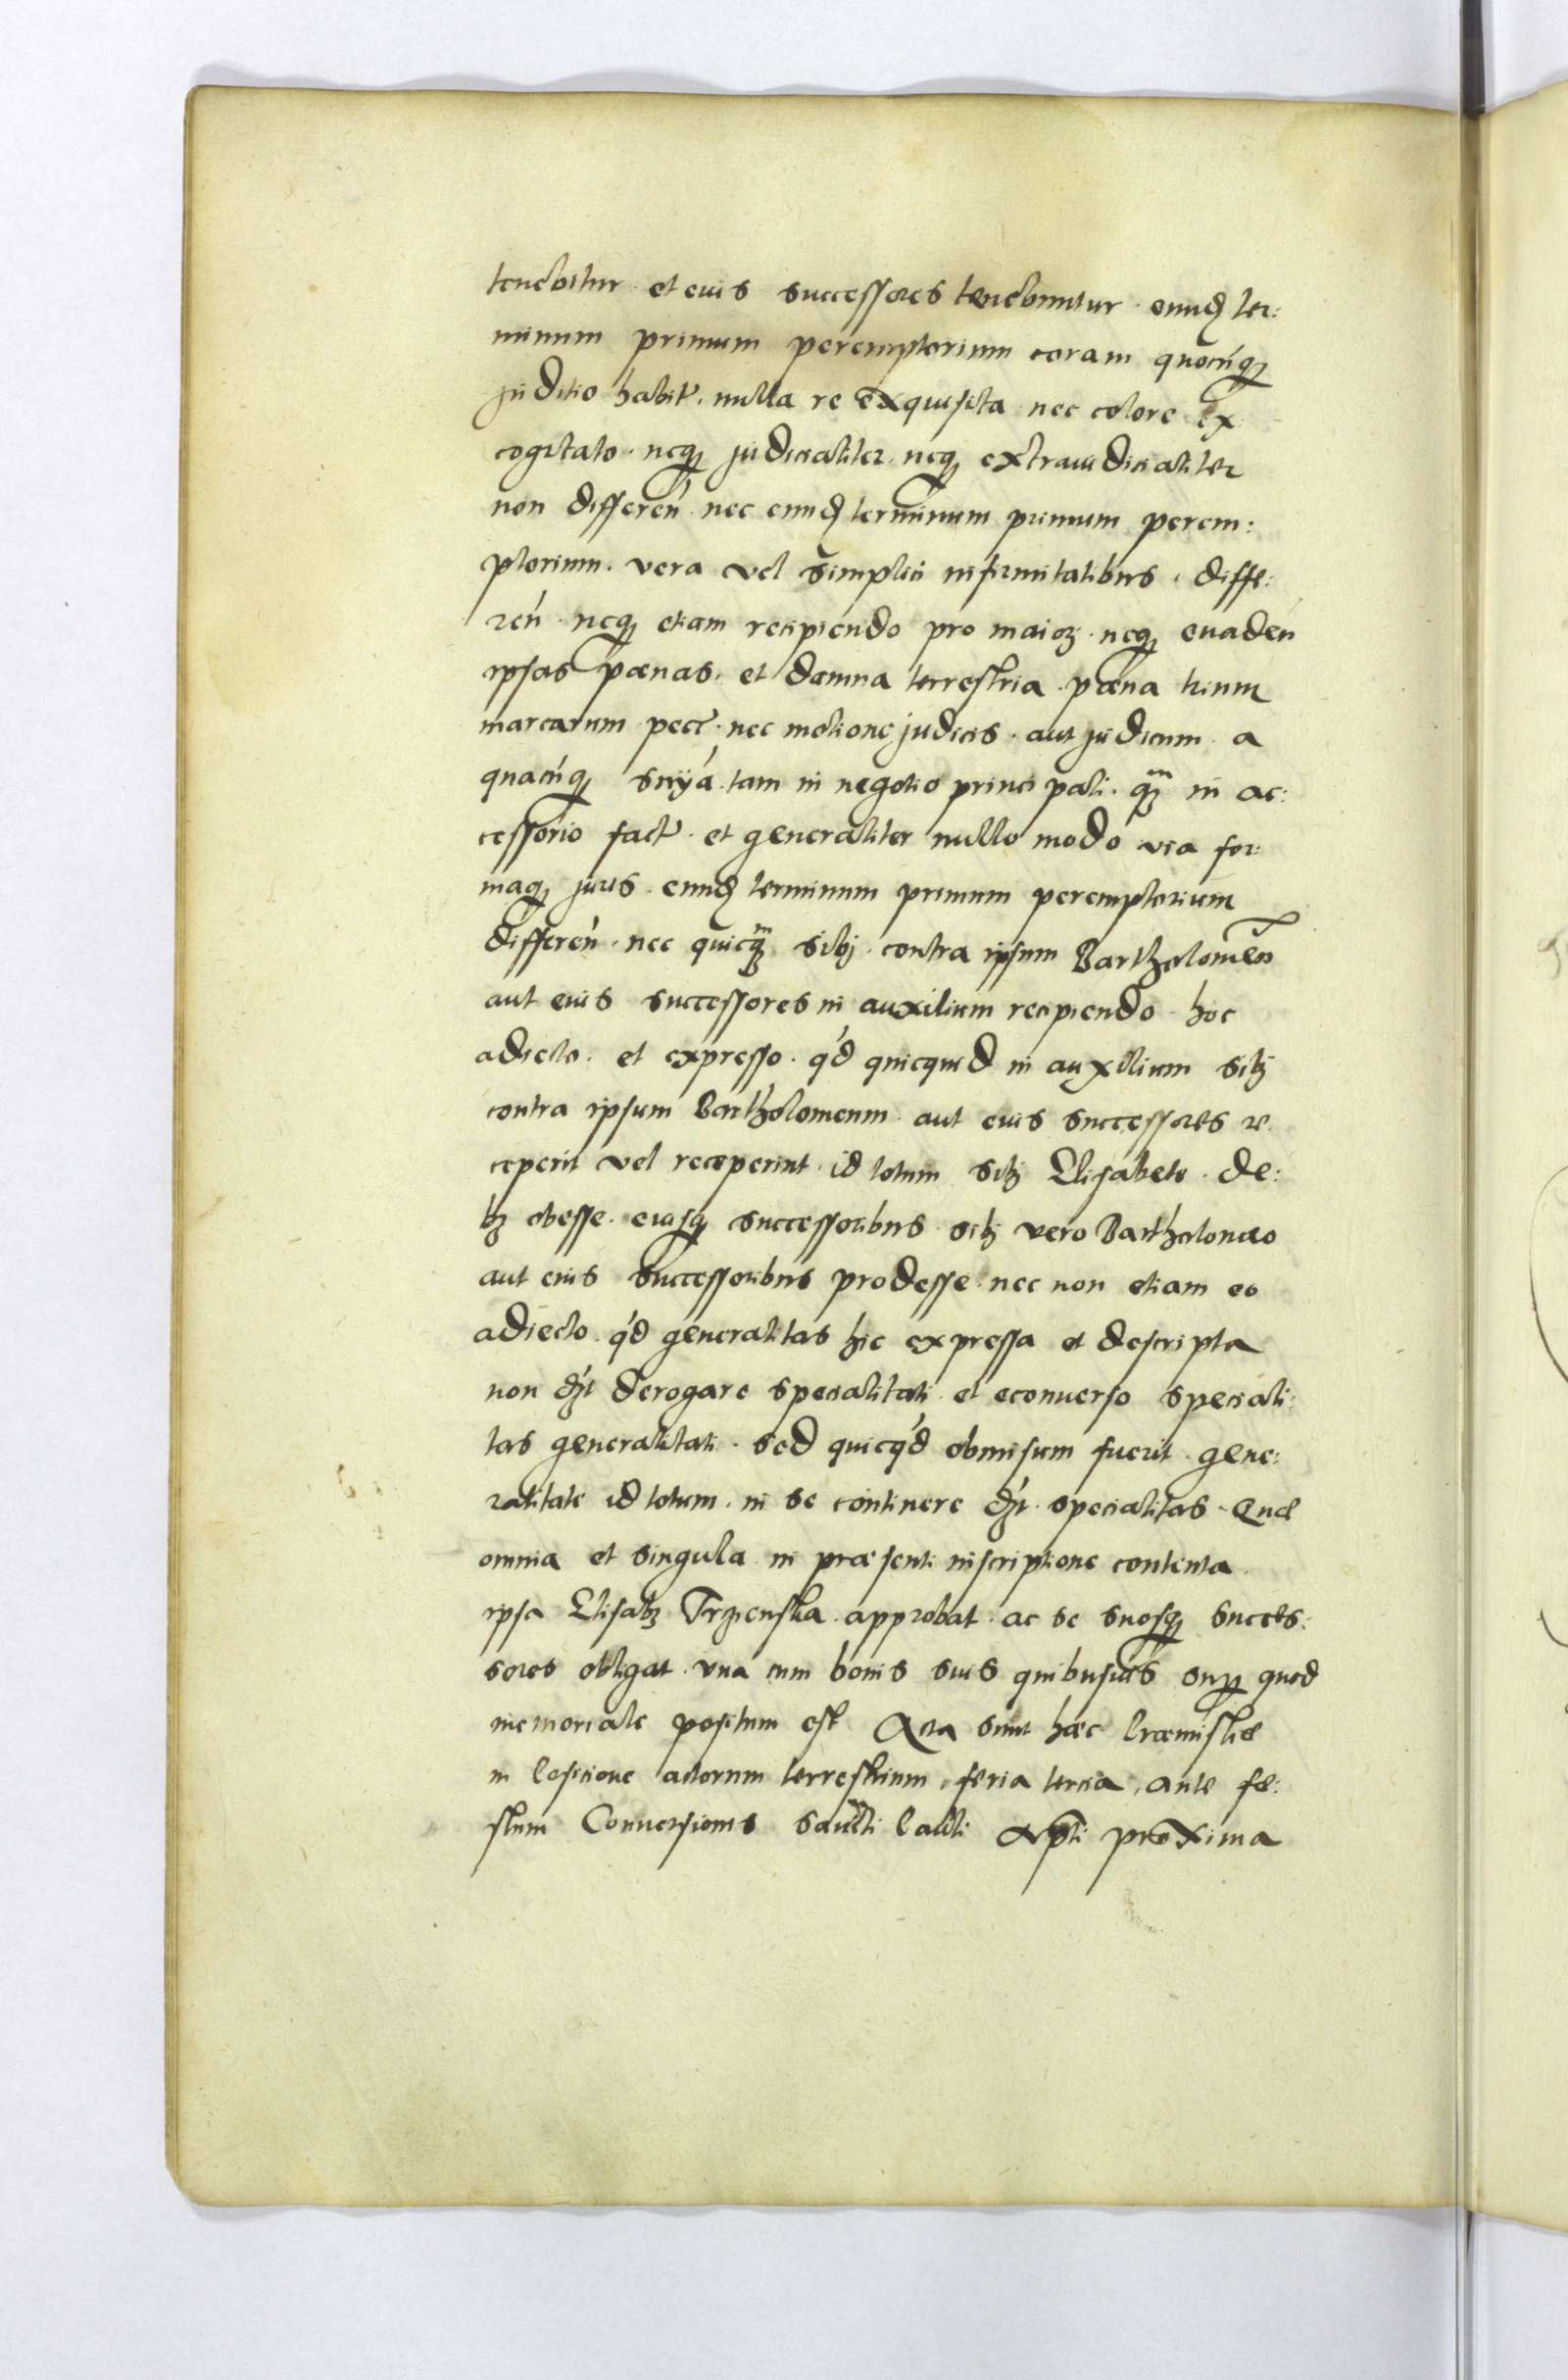 tenebitur et eius successores tenebuntur. eundꝫ ter:
minum primum peremptorium coram quocu̔qꝫ
juditio habit̔. nulla re exquisita nec colore ex
cogitato. neqꝫ judicialiter. neqꝫ extraiudicialiter
non differen̔ nec eundꝫ terminum primum perem:
ptorium. vera vel simplici infirmitatibus. diffe:
ren̔. neqꝫ etiam recipiendo pro maioꝫ. neqꝫ euaden̔
ipsas pœnas. et damna terrestria. pœna trium
marcarum pecc̔. nec motione judicis. aut judicum. a
quacu̔qꝫ snỹa. tam in negotio principali. qꝫm in ac:
cessorio fact̔. et generaliter nullo modo via for:
maqꝫ juris. eundꝫ terminum primum peremptorium
differen̔. nec quicqꝫm sibj. contra ipsum Bartholomeu̅
aut eius successores in auxilium recipiendo hoc
adiecto. et expresso. q̔d quicquid in auxilium sibꝫ
contra ipsum Bartholomeum. aut eius successores re
ceperit vel receperint. id totum sibꝫ Elisabete. de:
bꝫ obesse. eiusqꝫ successoribus. sibꝫ vero Bartholomeo
aut eius successoribus prodesse. nec non etiam eo
adiecto. q̔d generalitas hic expressa et descripta
non dꝫt derogare specialitati. et econuerso speciali:
tas generalitati. sed quicq̔d obmisum fuerit. gene:
ralitate id totum. in se continere dꝫt. specialitas. Quæ
omnia et singula in præsenti inscriptione contenta.
ipsa Elisabꝫ approbat. ac se suosqꝫ succes:
sores obligat. vna cum bonis suis quibusuis supꝫ quod
memoriale positum est. Acta sunt hæc Præmisliæ
in positione actorum terrestrium. feria tercia, ante fe:
stum Conuersionis Sancti Pauli Apti proxima